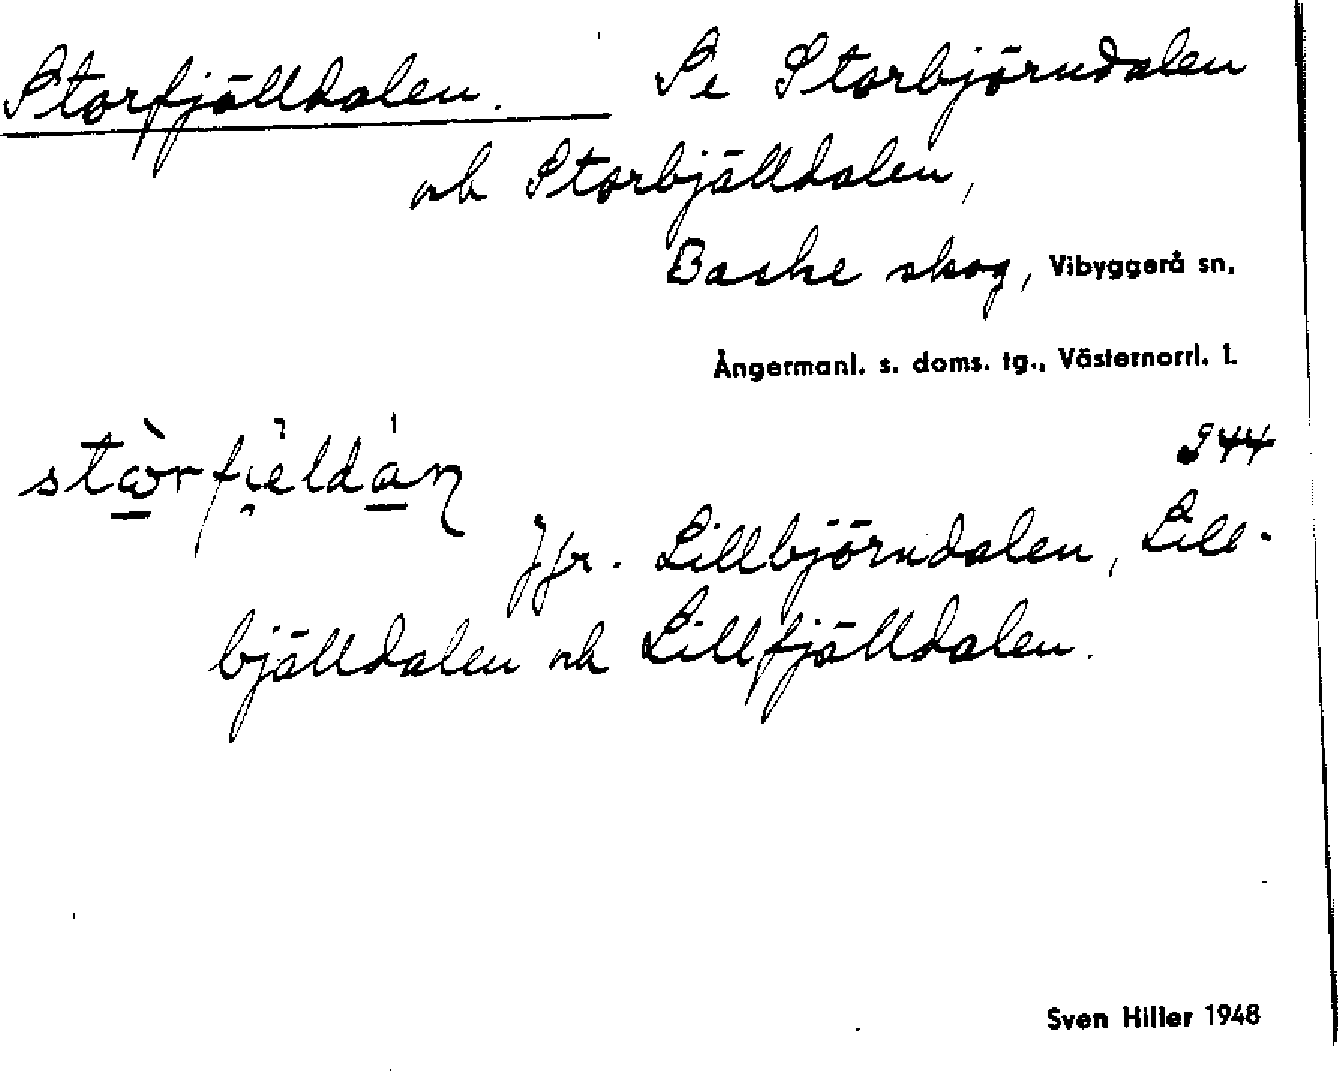 Storfjälldalen. Se Storbjörndalen
och Storbjälldalen,
Backe skog, Vibyggerå sn.
Ångermanl. s. doms. tg., Västernorrl. l.
944
Jfr. Lillbjörndalen, Lill-
bjälldalen och Lillfjälldalen.
Sven Hiller 1948